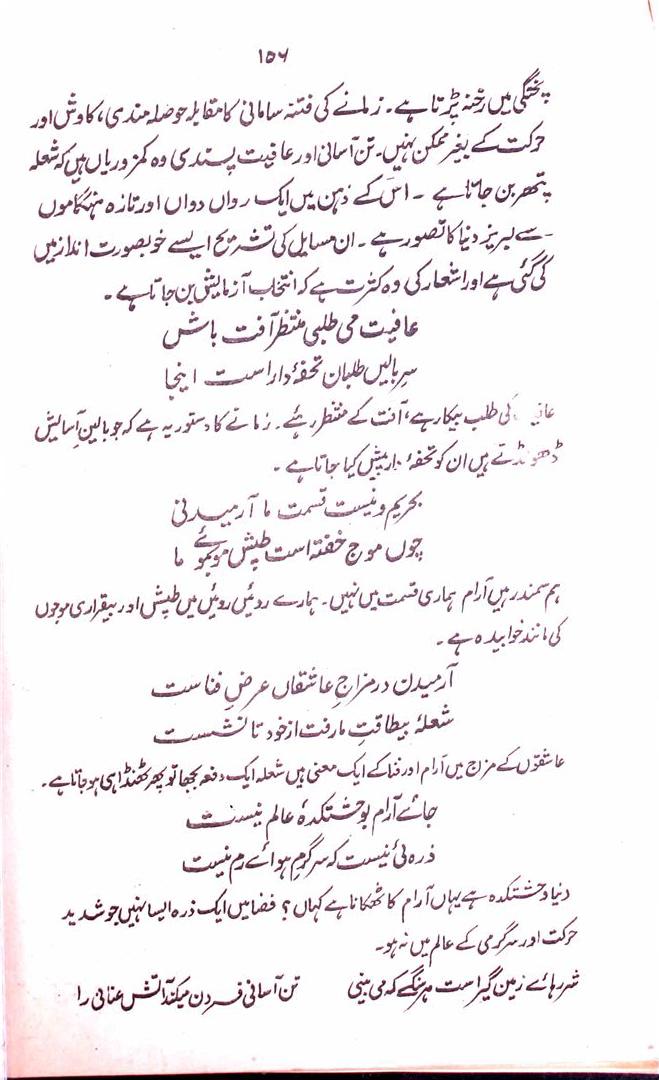 ۱۵۶
پختگی میں رخنہ پڑتا ہے۔ زمانے کی فتنہ سامانی کا مقابلہ حوصلہ مندی، کاوش اور
حرکت کے بغیر ممکن نہیں۔ تن آسانی اور عافیت پسندی وہ کمزوریاں ہیں کہ شعلہ
پتھر بن جاتا ہے ۔ اس کے ذہن میں ایک رواں دواں اور تازہ ہنگاموں
سے لبریز دنیا کا تصور ہے ۔ ان مسایل کی تشریح ایسے خوبصورت انداز میں
کی گئی ہے اور اشعار کی وہ کثرت ہے کہ انتخاب آزمایش بن جاتا ہے ۔
عافیت می طلبی منتظر آفت باش
سرِ بالیں طلبان تحفۂ دار است اینجا
کی طلب بیکار ہے، آفت کے منتظر رہئے۔ زمانے کا دستور یہ ہے کہ جو بالینِ آسایش
ڈھونڈتے ہیں ان کو تحفۂ دار پیش کیا جاتا ہے ۔
بحریم و نیست قسمت ما آرمیدنی
چوں موج خفتہ است طپش مو بموئے ما
ہم سمندر ہیں آرام ہماری قسمت میں نہیں۔ ہمارے روئیں روئیں میں طپش اور بیقراری موجوں
کی مانند خوابیدہ ہے ۔
آرمیدن در مزاجِ عاشقاں عرضِ فنا ست
شعلۂ بیطاقتِ ما رفت از خود تا نشست
عاشقوں کے مزاج میں آرام اور فنا کے ایک معنی ہیں شعلہ ایک دفعہ بجھا تو پھر ٹھنڈا ہی ہو جاتا ہے۔
جائے آرام بوحشتکدۂ عالم نیست
ذرہ ئی نیست کہ سرگرمِ ہوائے رم نیست
دنیا وحشتکدہ ہے یہاں آرام کا ٹھکانا ہے کہاں؟ فضا میں ایک ذرہ ایسا نہیں جو شدید
حرکت اور سرگرمی کے عالم میں نہ ہو۔
شررہائے زمین گیر است ہر سنگے کہ می بینی تن آسانی فسردن میکند آتش عنانی را